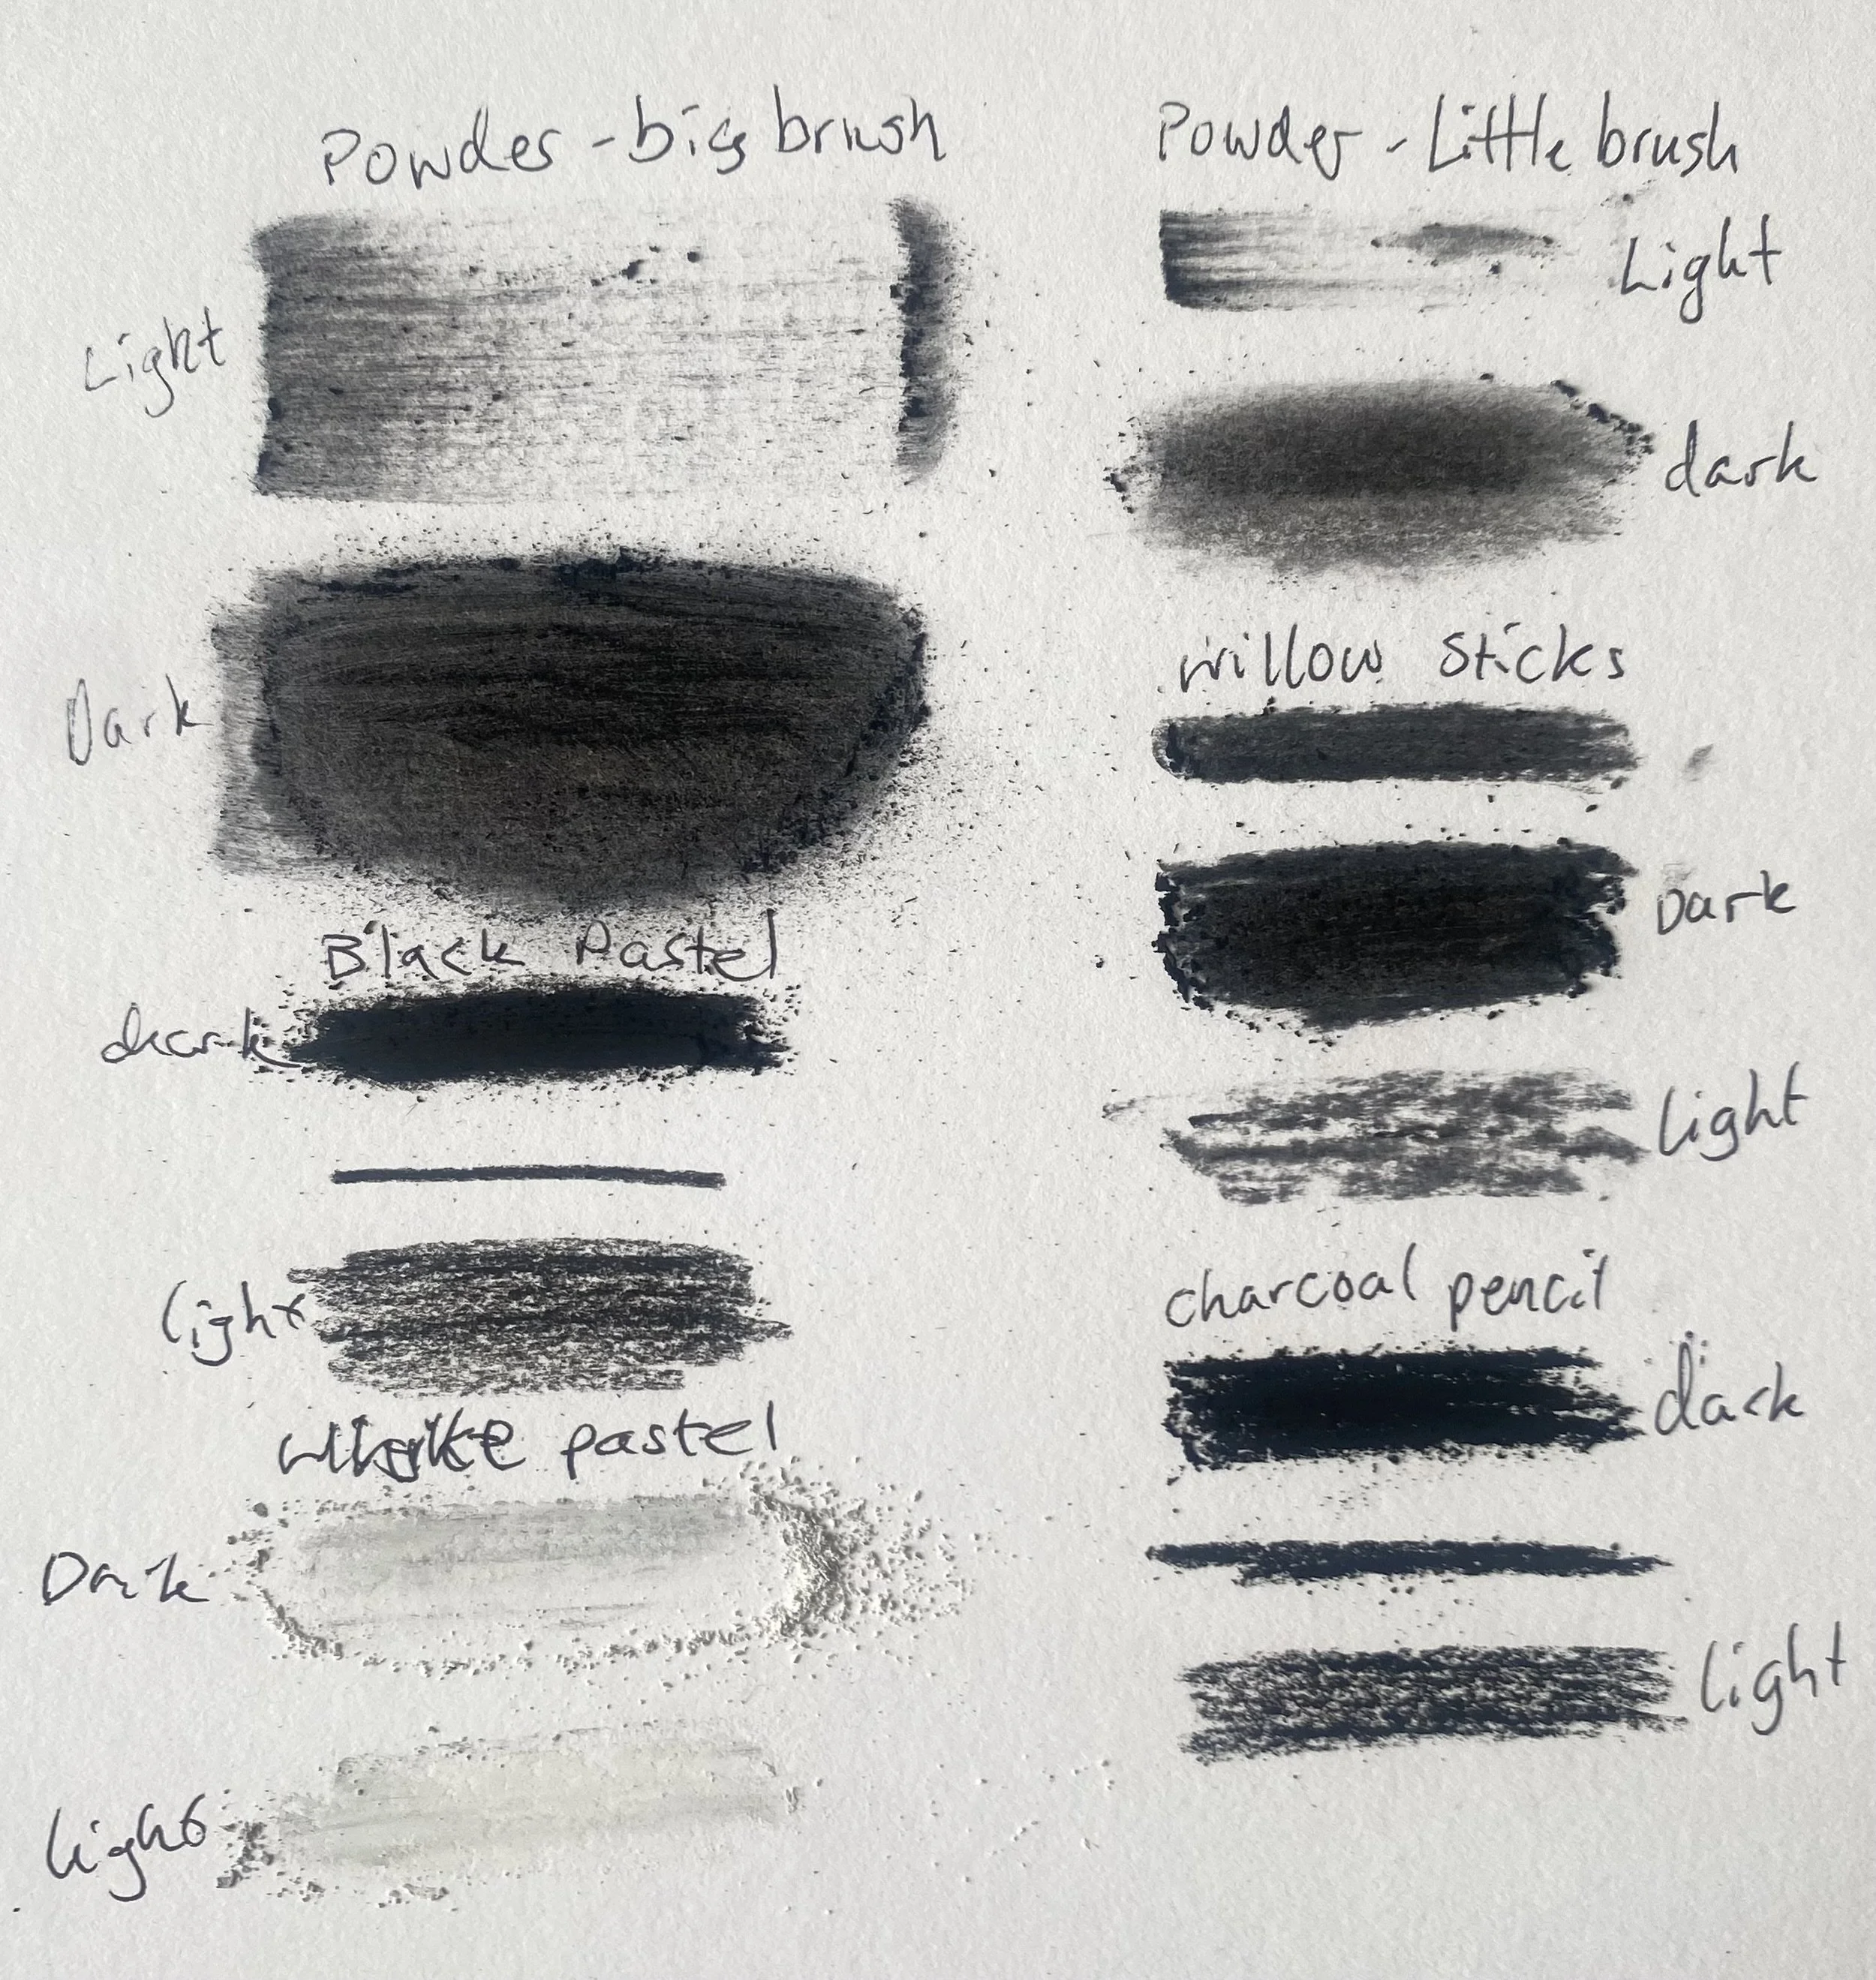 Powder - big brush
Light
Dark
Black Pastel
dark
light
white pastel
Dark
light
Powder - Little brush
Light
dark
willow sticks
Dark
light
charcoal pencil
dark
light